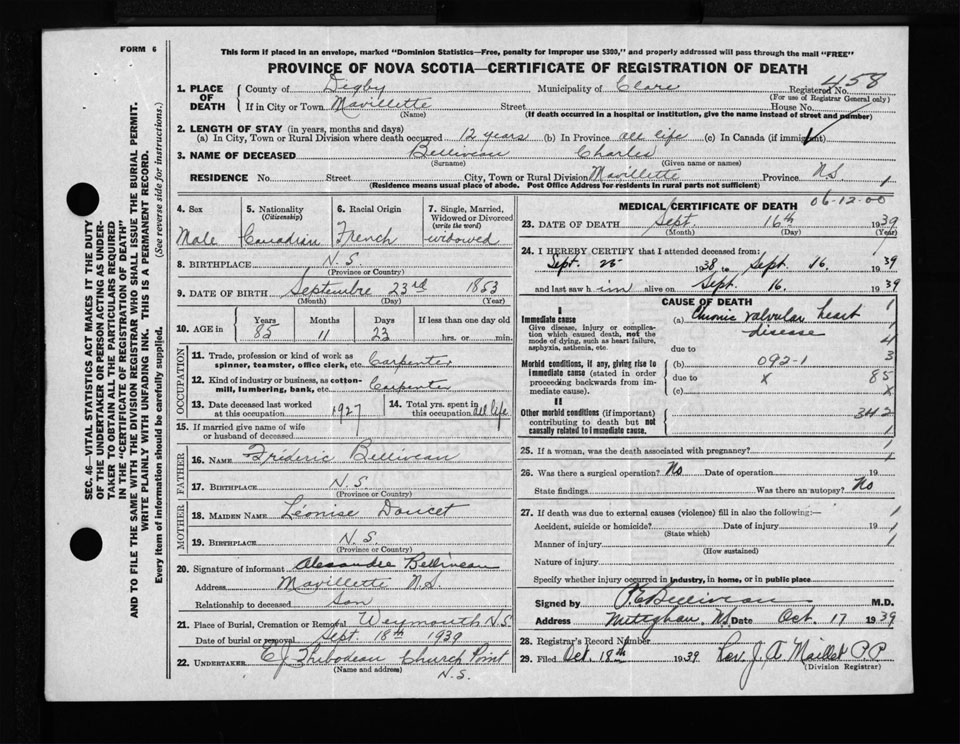 FORM 6
This form if placed in an envelope, marked "Dominion Statistics—Free, penalty for improper use $300," and properly addressed will pass through the mail "FREE"
PROVINCE OF NOVA SCOTIA—CERTIFICATE OF REGISTRATION OF DEATH
SEC. 46—VITAL STATISTICS ACT MAKES IT THE DUTY
OF THE UNDERTAKER OR PERSON ACTING AS UNDER-
TAKER TO OBTAIN ALL THE PARTICULARS REQUIRED
IN THE "CERTIFICATE OF REGISTRATION OF DEATH"
AND TO FILE THE SAME WITH THE DIVISION REGISTRAR WHO SHALL ISSUE THE BURIAL PERMIT.
WRITE PLAINLY WITH UNFADING INK. THIS IS A PERMANENT RECORD.
Every item of information should be carefully supplied. (See reverse side for instructions.)
1. PLACE OF DEATH
County of Digby Municipality of Clare Registered No. 458
(For use of Registrar General only)
If in City or Town Mavillette Street House No.
(Name) (If death occurred in a hospital or institution, give the name instead of street and number)
2. LENGTH OF STAY (in years, months and days)
(a) In City, Town or Rural Division where death occurred 12 years (b) In Province all life (c) In Canada (if immigrant)
3. NAME OF DECEASED Belliveau Charles
(Surname) (Given name or names)
RESIDENCE No. Street City, Town or Rural Division Mavillette Province N.S. 1
(Residence means usual place of abode. Post Office Address for residents in rural parts not sufficient)
4. Sex
Male
5. Nationality
(Citizenship)
Canadian
6. Racial Origin
French
7. Single, Married,
Widowed or Divorced
(write the word)
widowed
8. BIRTHPLACE N.S.
(Province or Country)
9. DATE OF BIRTH Septembre 23rd 1853
(Month) (Day) (Year)
10. AGE in
Years Months Days If less than one day old
85 11 23 hrs. or min.
OCCUPATION
11. Trade, profession or kind of work as
spinner, teamster, office clerk, etc. Carpenter
12. Kind of industry or business, as cotton-
mill, lumbering, bank, etc. Carpente
13. Date deceased last worked
at this occupation 1927
14. Total yrs. spent in
this occupation all life
15. If married give name of wife
or husband of deceased
FATHER
16. NAME Fréderic Belliveau
17. BIRTHPLACE N.S.
(Province or Country)
MOTHER
18. MAIDEN NAME Léonise Doucet
19. BIRTHPLACE N.S.
(Province or Country)
20. Signature of informant Alexandre Belliveau
Address Mavillette N.S.
Relationship to deceased Son
21. Place of Burial, Cremation or Removal Weymouth N.S.
Date of burial or removal Sept. 18th 1939
22. UNDERTAKER E.J. Thibodeau Church Point
(Name and address)
N.S.
MEDICAL CERTIFICATE OF DEATH 06-12-00
23. DATE OF DEATH Sept. 16th 1939
(Month) (Day) (Year)
24. I HEREBY CERTIFY that I attended deceased from:
Sept. 25 1938 to Sept. 16. 1939
and last saw him alive on Sept. 16. 1939
CAUSE OF DEATH
I
Immediate cause
Give disease, injury or complica-
tion which caused death, not the
mode of dying, such as heart failure,
asphyxia, asthenia, etc.
(a) Chronic valvular heart 1
disease 4
due to 3
Morbid conditions, if any, giving rise to
immediate cause (stated in order
proceeding backwards from im-
mediate cause).
(b) 092-1
due to x 85
(c) x
II
Other morbid conditions (if important)
contributing to death but not
causally related to immediate cause.
342
1
25. If a woman, was the death associated with pregnancy?
26. Was there a surgical operation? No Date of operation 19 1
State findings Was there an autopsy? No
27. If death was due to external causes (violence) fill in also the following:—
1
Accident, suicide or homicide? Date of injury 19 1
(State which)
Manner of injury 1
(How sustained)
Nature of injury
Specify whether injury occurred in industry, in home, or in public place
Signed by P.E. Belliveau M.D.
Address Meteghan, N.S. Date Oct. 17 1939
28. Registrar's Record Number
29. Filed Oct. 18th 1939 Rev. J. A Maillet P.P.
(Division Registrar)